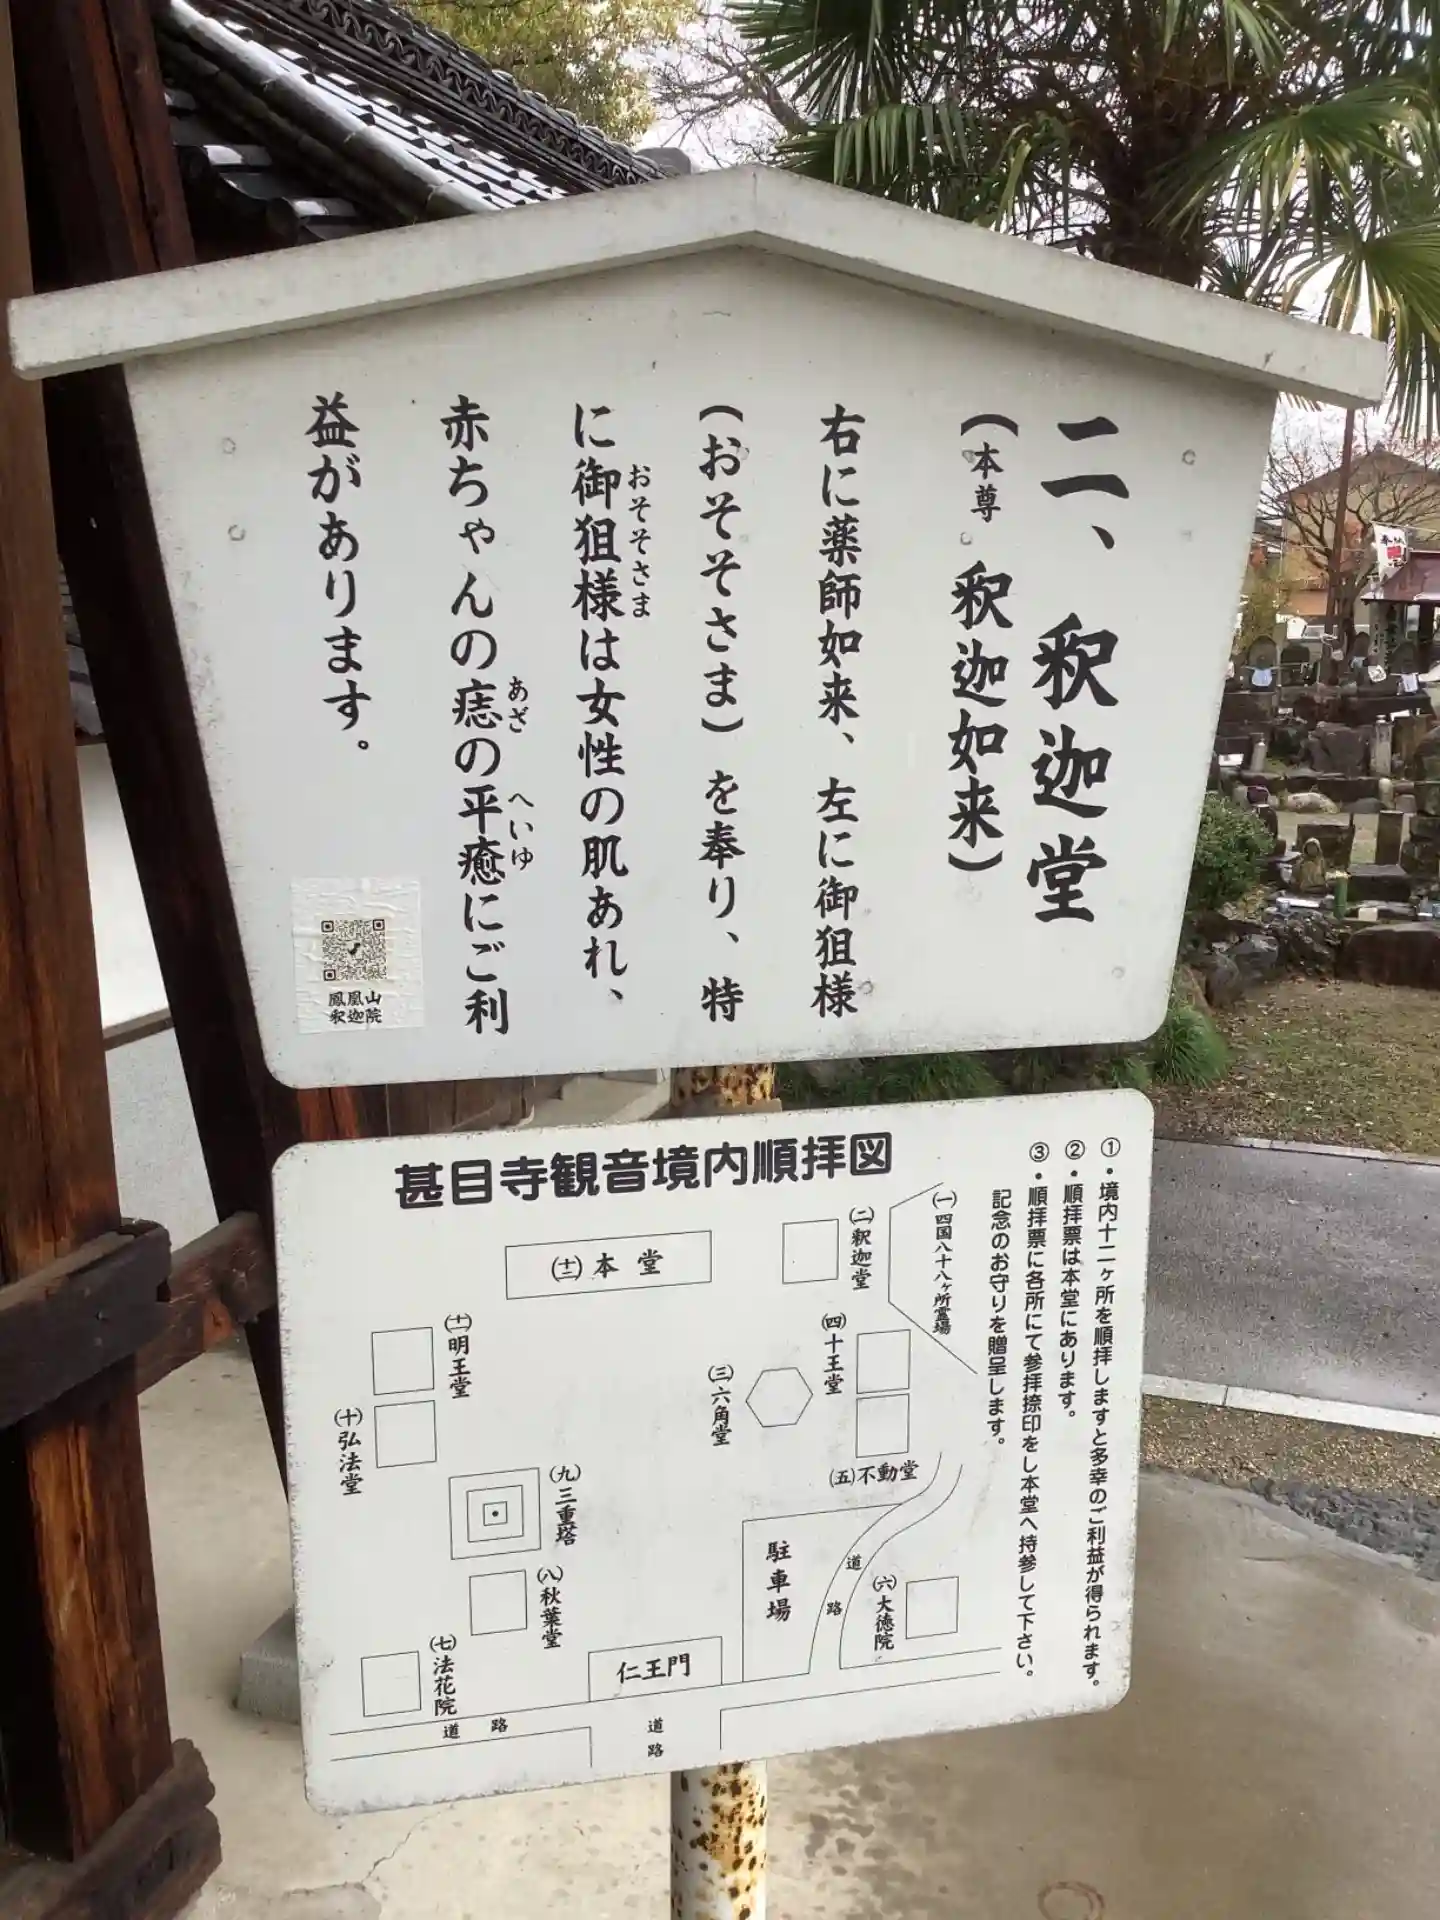 二、釈迦堂
（本尊 釈迦如来）
右に薬師如来、左に御狙様
（おそそさま）を奉り、特
に御狙様は女性の肌あれ、
おそそさま
赤ちゃんの痣の平癒にご利
あざ
へいゆ
益があります。
鳳凰山
釈迦院
甚目寺観音境内順拝図
①・境内十二ヶ所を順拝しますと多幸のご利益が得られます。
②・順拝票は本堂にあります。
③・順拝票に各所にて参拝捺印をし本堂へ持参して下さい。
記念のお守りを贈呈します。
㈠四国八十八ヶ所霊場
㈡釈迦堂
(十二)本堂
㈣十王堂
㈢六角堂
㈤不動堂
(十一)明王堂
㈩弘法堂
㈨三重塔
㈧秋葉堂
㈦法花院
㈥大徳院
駐車場
道路
仁王門
道路
道路